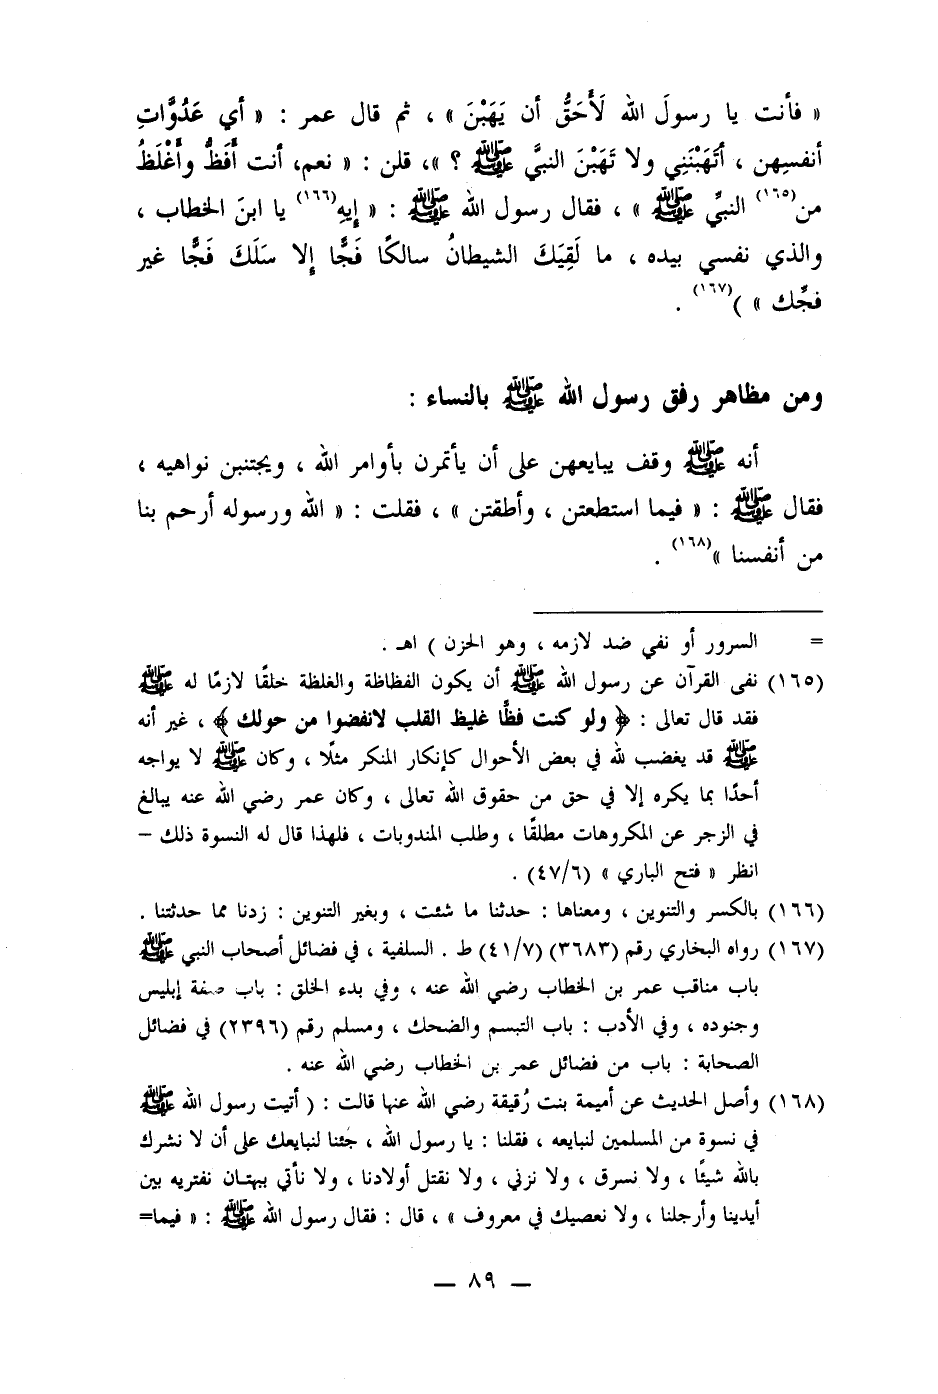 « فأنت يا رسولَ الله لَأَحَقُّ أن يَهَبْنَ » ، ثم قال عمر : « أي عَدُوَّاتِ
أنفسِهن ، أَتَهَبْنَنِي ولا تَهَبْنَ النبيَّ ﷺ ؟ »، قلن : « نعم، أنت أَفَظُّ وأَغْلَظُ
من(١٦٥) النبيِّ ﷺ » ، فقال رسول الله ﷺ : « إِيهِ(١٦٦) يا ابنَ الخطاب ،
والذي نفسي بيده ، ما لَقِيَكَ الشيطانُ سالكًا فَجًّا إلا سَلَكَ فَجًّا غير
فجِّك » )(١٦٧) .
ومن مظاهر رفق رسول الله ﷺ بالنساء :
أنه ﷺ وقف يبايعهن على أن يأتمرن بأوامر الله ، ويجتنبن نواهيه ،
فقال ﷺ : « فيما استطعتن ، وأطقتن » ، فقلت : « الله ورسوله أرحم بنا
من أنفسنا »(١٦٨) .
= السرور أو نفي ضد لازمه ، وهو الحزن ) اهـ .
(١٦٥) نفى القرآن عن رسول الله ﷺ أن يكون الفظاظة والغلظة خلقًا لازمًا له ﷺ
فقد قال تعالى : ﴿ ولو كنت فظًّا غليظ القلب لانفضوا من حولك ﴾ ، غير أنه
ﷺ قد يغضب لله في بعض الأحوال كإنكار المنكر مثلًا ، وكان ﷺ لا يواجه
أحدًا بما يكره إلا في حق من حقوق الله تعالى ، وكان عمر رضي الله عنه يبالغ
في الزجر عن المكروهات مطلقًا ، وطلب المندوبات ، فلهذا قال له النسوة ذلك –
انظر « فتح الباري » (٤٧/٦) .
(١٦٦) بالكسر والتنوين ، ومعناها : حدثنا ما شئت ، وبغير التنوين : زدنا مما حدثتنا .
(١٦٧) رواه البخاري رقم (٣٦٨٣) (٤١/٧) ط . السلفية ، في فضائل أصحاب النبي ﷺ
باب مناقب عمر بن الخطاب رضي الله عنه ، وفي بدء الخلق : باب صفة إبليس
وجنوده ، وفي الأدب : باب التبسم والضحك ، ومسلم رقم (٢٣٩٦) في فضائل
الصحابة : باب من فضائل عمر بن الخطاب رضي الله عنه .
(١٦٨) وأصل الحديث عن أميمة بنت رُقيقة رضي الله عنها قالت : ( أتيت رسول الله ﷺ
في نسوة من المسلمين لنبايعه ، فقلنا : يا رسول الله ، جئنا لنبايعك على أن لا نشرك
بالله شيئًا ، ولا نسرق ، ولا نزني ، ولا نقتل أولادنا ، ولا نأتي ببهتان نفتريه بين
أيدينا وأرجلنا ، ولا نعصيك في معروف » ، قال : فقال رسول الله ﷺ : « فيما=
— ٨٩ —